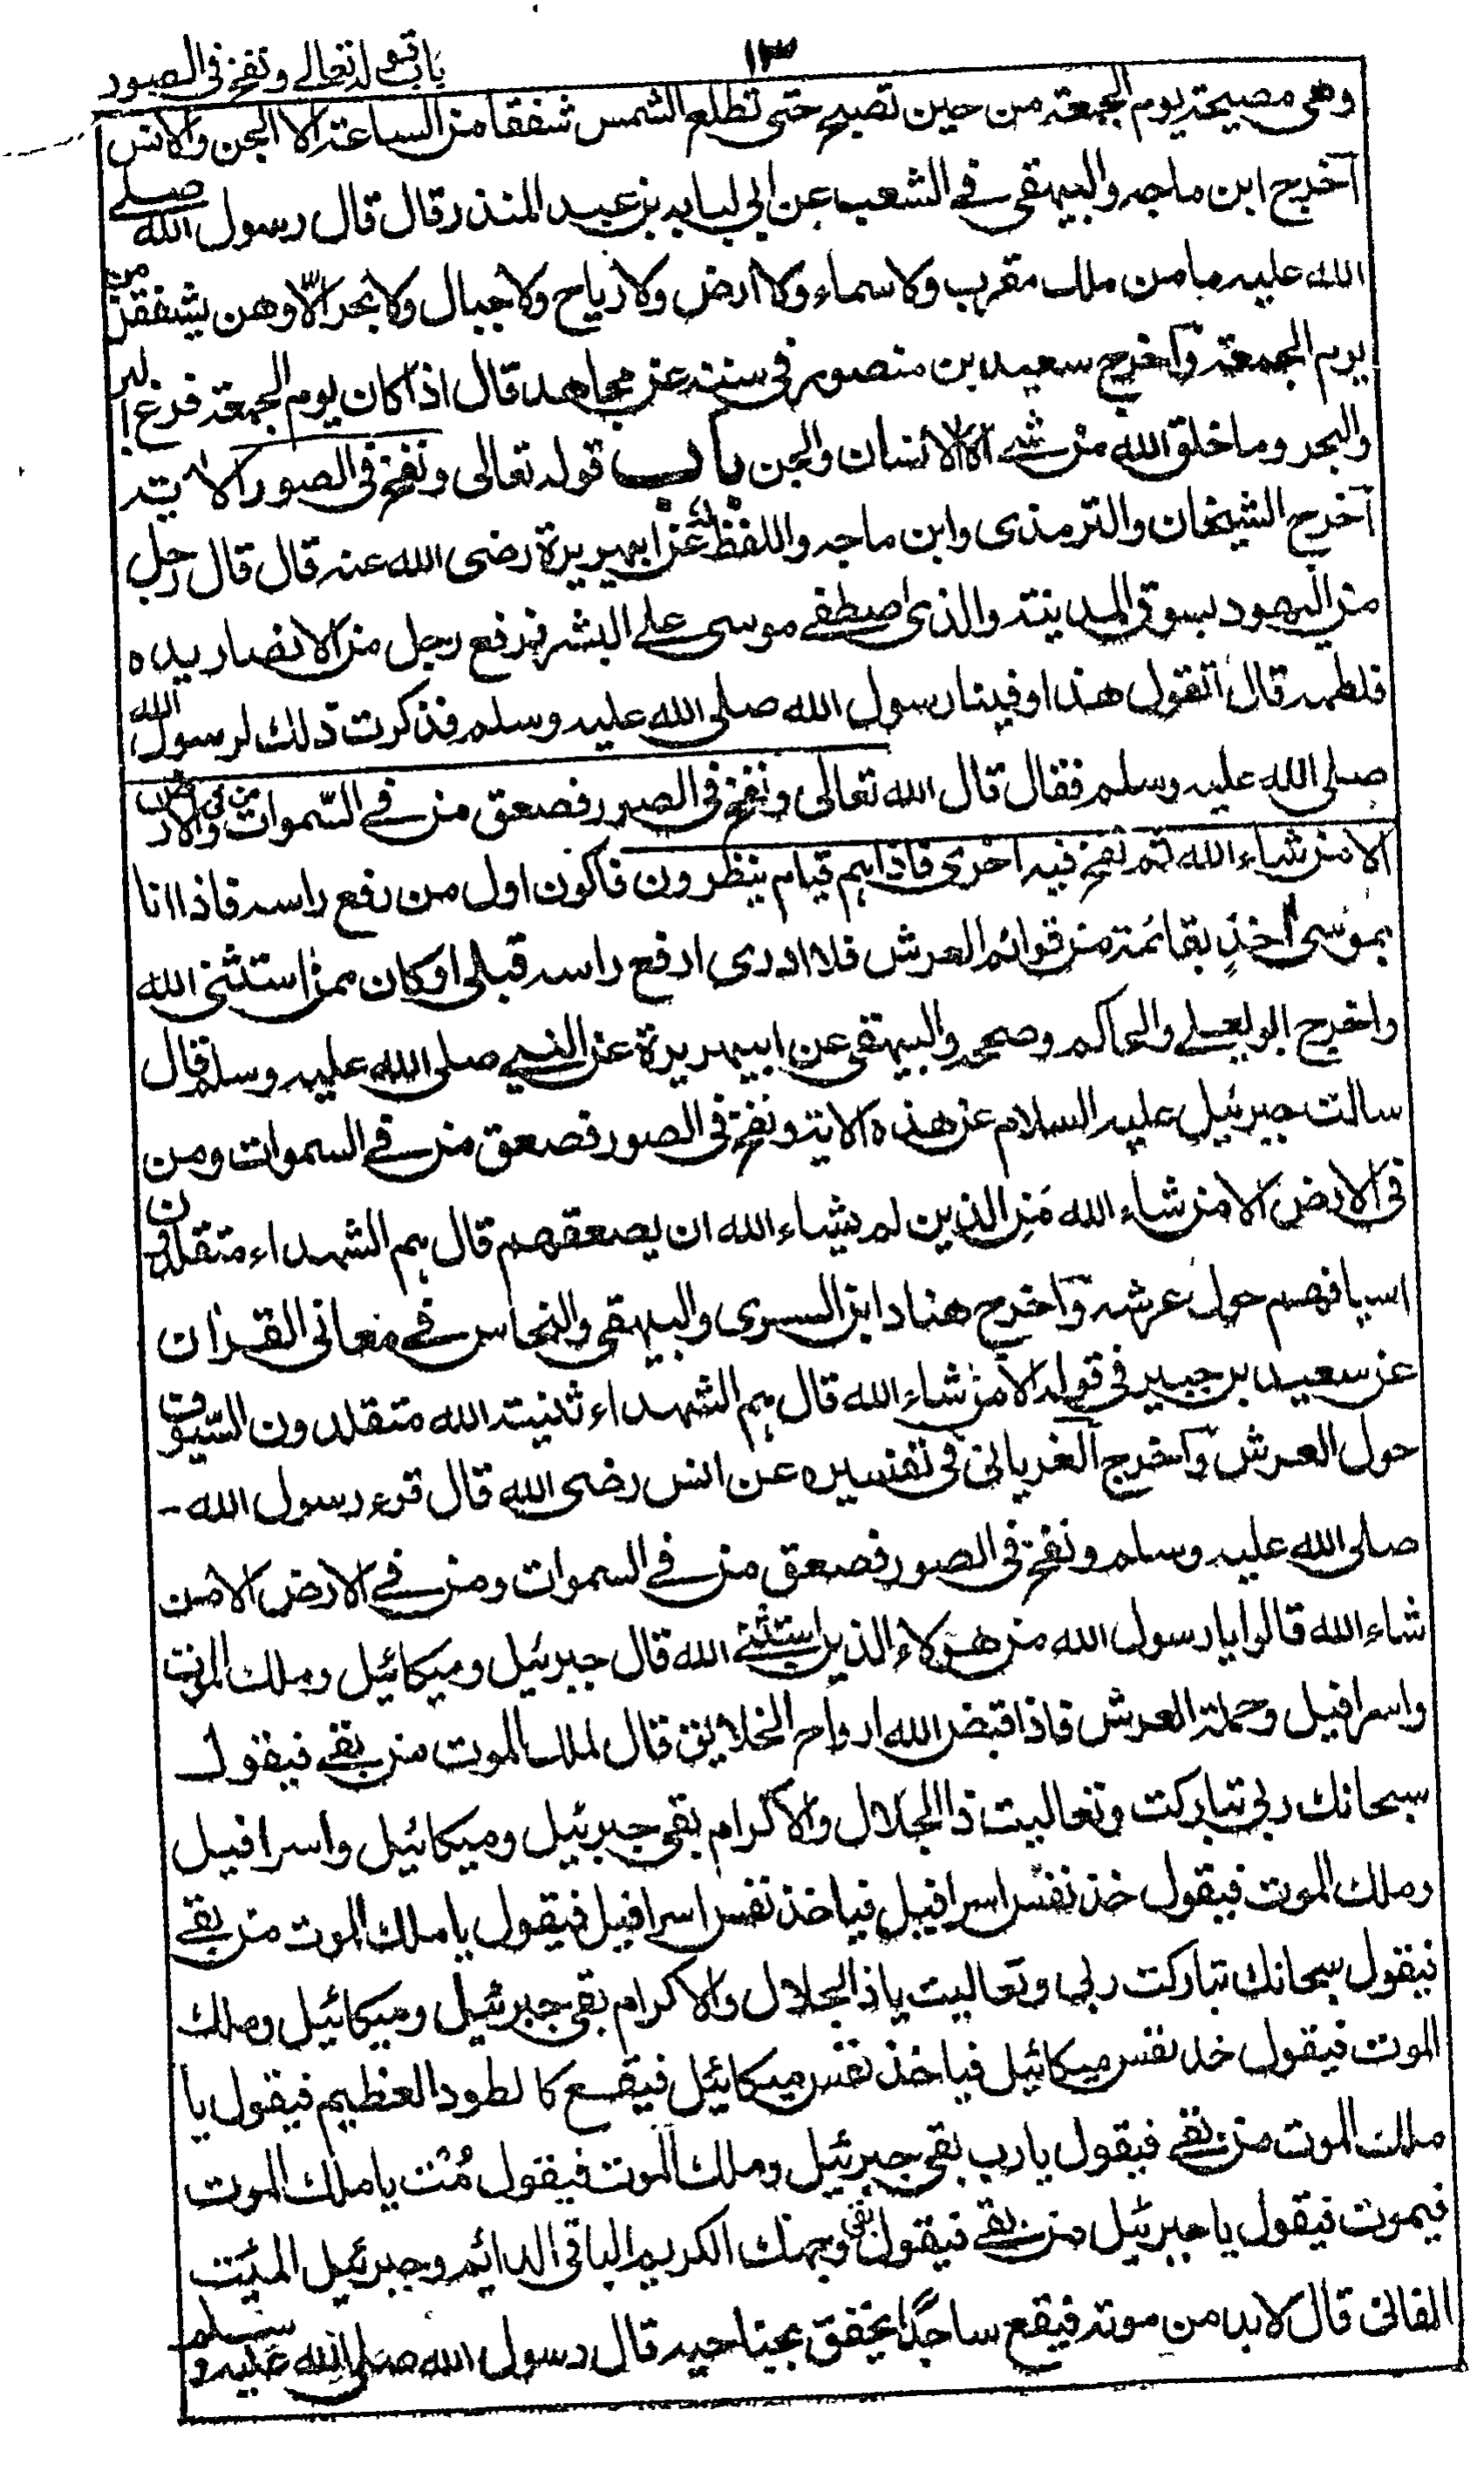 ١٣
باب قوله تعالے ونفخ فی الصور
وهی مصيحة يوم الجمعة من حين تصبح حتى تطلع الشمس شفقا من الساعة الا الجن والانس
آخرج ابن ماجه والبيهقی فے الشعب عن ابی لبابه بن عبد المنذر قال قال رسول الله صلے
الله عليه ما من ملك مقرب ولا سماء ولا ارض ولا رياح ولا جبال ولا بحر الّا وهن يشفقن من
يوم الجمعة وآخرج سعيد بن منصور فی سننه عن مجاهد قال اذا كان يوم الجمعة فزع البر
والبحر وما خلق الله من شے الا الانسان والجن باب قوله تعالى ونفخ فی الصور الاٰية
آخرج الشيخان والترمذی وابن ماجه واللفظ له عن ابی هريرة رضی الله عنه قال قال رجل
من اليهود بسوق المدينة والذی اصطفے موسى علے البشر فرفع رجل من الانصار يده
فلطمه قال اتقول هذا وفينا رسول الله صلى الله عليه وسلم فذكرت ذلك لرسول الله
صلى الله عليه وسلم فقال قال الله تعالى ونفخ فی الصور فصعق من فے السّموات ومن فی الارض
الا من شاء الله ثم نفخ فيه اخرى فاذا هم قيام ينظرون فاكون اول من رفع راسه فاذا انا
بموسى اٰخذٍ بقائمة من قوائم العرش فلا ادری ارفع راسه قبلی او كان ممن استثنى الله
واخرج ابو يعلے والحاكم وصححه والبيهقی عن ابی هريرة عن النبے صلى الله عليه وسلم قال
سالت جبرئيل عليه السلام عن هذه الاية ونفخ فی الصور فصعق من فے السموات ومن
فی الارض الا من شاء الله مَن الذين لم يشاء الله ان يصعقهم قال هم الشهداء متقلدون
اسيافهم حول عرشه وآخرج هناد ابن السری والبيهقی والنحاس فے معانی القراٰن
عن سعيد بن جبير فی قوله الا من شاء الله قال هم الشهداء ثنية الله متقلدون السّيوف
حول العرش وآخرج الفريابی فی تفسيره عن انس رضی الله قال قرء رسول الله
صلى الله عليه وسلم ونفخ فی الصور فصعق من فے السموات ومن فے الارض الا من
شاء الله قالوا يا رسول الله من هؤلاء الذين استثنے الله قال جبرئيل وميكائيل وملك الموت
واسرافيل وحملة العرش فاذا قبض الله ارواح الخلايق قال لملك الموت من بقے فيقول
سبحانك ربی تباركت وتعاليت ذا الجلال والاكرام بقی جبرئيل وميكائيل واسرافيل
وملك الموت فيقول خذ نفس اسرافيل فياخذ نفس اسرافيل فيقول يا ملك الموت من بقے
فيقول سبحانك تباركت ربی وتعاليت يا ذا الجلال والاكرام بقی جبرئيل وميكائيل وملك
الموت فيقول خذ نفس ميكائيل فياخذ نفس ميكائيل فيقع كالطود العظيم فيقول يا
ملك الموت من بقے فيقول يا رب بقی جبرئيل وملك الموت فيقول مُت يا ملك الموت
فيموت فيقول يا جبرئيل من بقے فيقول بقی وجهك الكريم الباقی الدائم وجبرئيل الميّت
الفانی قال لا بد من موته فيقع ساجدًا يخفق بجناحيه قال رسول الله صلى الله عليه وسلم